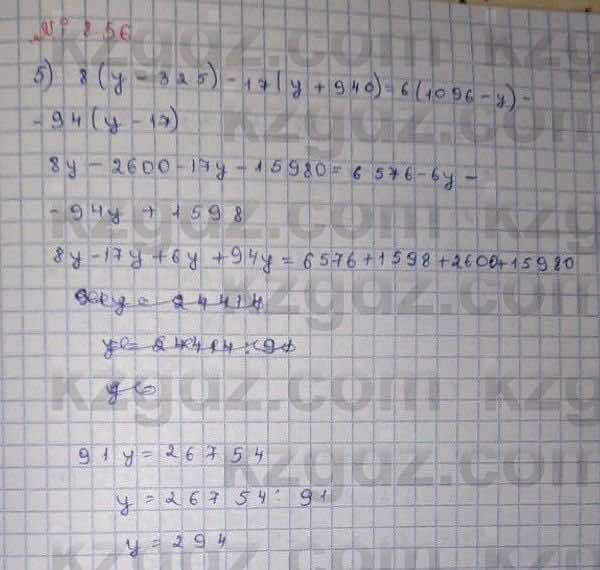 № 856
5) 8(y - 325) - 17(y + 940) = 6(1096 - y) -
- 94(y - 17)
8y - 2600 - 17y - 15980 = 6576 - 6y -
- 94y + 1598
8y - 17y + 6y + 94y = 6576 + 1598 + 2600 + 15980
91y = 26754
y = 26754 : 91
y = 294
kzgdz.com